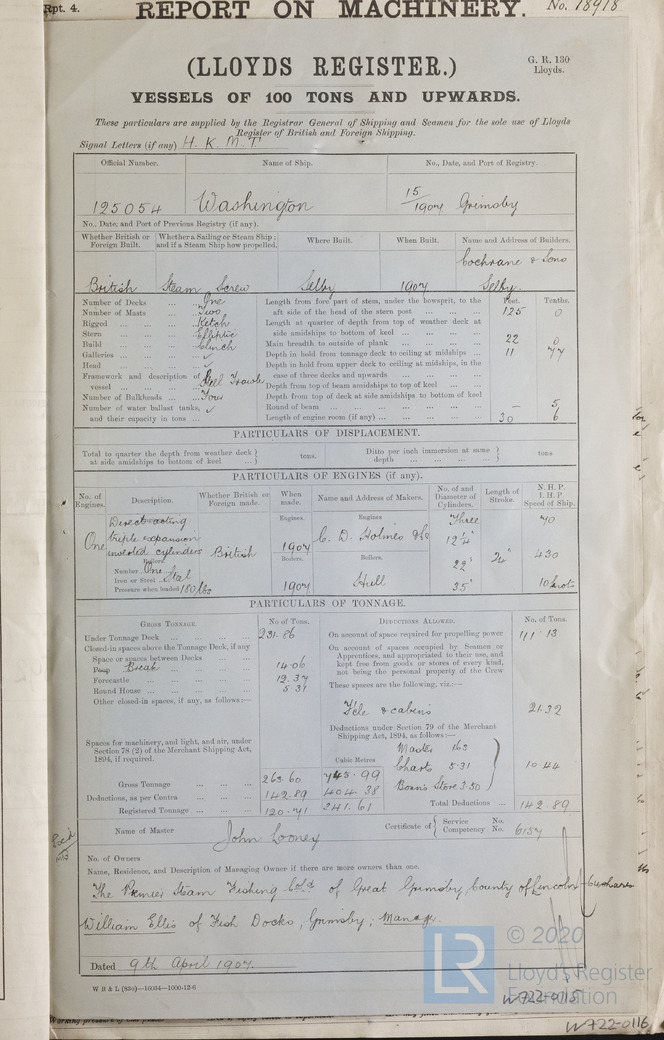 Rpt. 4.
REPORT ON MACHINERY.
No. 18918
(LLOYDS REGISTER.)
G. R. 130
Lloyds.
VESSELS OF 100 TONS AND UPWARDS.
These particulars are supplied by the Registrar General of Shipping and Seamen for the sole use of Lloyds
Register of British and Foreign Shipping.
Signal Letters (if any) H. K. M. T.
Official Number. Name of Ship. No., Date, and Port of Registry.
125054 Washington 15/1907 Grimsby
No., Date, and Port of Previous Registry (if any).
Whether British or Foreign Built. Whether a Sailing or Steam Ship; and if a Steam Ship how propelled. Where Built. When Built. Name and Address of Builders.
British Steam Screw Selby 1907 Cochrane & Sons Selby.
Number of Decks ... One
Number of Masts ... Two
Rigged ... Ketch
Stern ... Elliptic
Build ... Clinch
Galleries ... ✓
Head ... ✓
Framework and description of vessel ... Steel Trawler
Number of Bulkheads ... Four
Number of water ballast tanks, and their capacity in tons ... ✓
Feet. Tenths.
Length from fore part of stem, under the bowsprit, to the aft side of the head of the stern post ... 125 0
Length at quarter of depth from top of weather deck at side amidships to bottom of keel ...
Main breadth to outside of plank ... 22 0
Depth in hold from tonnage deck to ceiling at midships ... 11 77
Depth in hold from upper deck to ceiling at midships, in the case of three decks and upwards ...
Depth from top of beam amidships to top of keel ...
Depth from top of deck at side amidships to bottom of keel
Round of beam ... — 5
Length of engine room (if any) ... 30 6
PARTICULARS OF DISPLACEMENT.
Total to quarter the depth from weather deck at side amidships to bottom of keel ... tons. Ditto per inch immersion at same depth ... tons
PARTICULARS OF ENGINES (if any).
No. of Engines. Description. Whether British or Foreign made. When made. Name and Address of Makers. No. of and Diameter of Cylinders. Length of Stroke. N.H.P. I.H.P. Speed of Ship.
One Direct acting triple expansion inverted cylinders British
Engines. 1907 Engines C. D. Holmes & Co Three 12¼" 22" 35" 24" 70 430 10 knots
Boilers
Number One
Iron or Steel Steel
Pressure when loaded 180 lbs
Boilers. 1907 Boilers. Hull
PARTICULARS OF TONNAGE.
GROSS TONNAGE. No of Tons.
Under Tonnage Deck ... 231.86
Closed-in spaces above the Tonnage Deck, if any
Space or spaces between Decks ...
Poop Break 14.06
Forecastle ... 12.37
Round House ... 5.31
Other closed-in spaces, if any, as follows:—
Spaces for machinery, and light, and air, under Section 78 (2) of the Merchant Shipping Act, 1894, if required.
Cubic Metres
Gross Tonnage ... 263.60 745.99
Deductions, as per Contra ... 142.89 404.38
Registered Tonnage ... 120.71 341.61
DEDUCTIONS ALLOWED. No. of Tons.
On account of space required for propelling power 111.13
On account of spaces occupied by Seamen or Apprentices, and appropriated to their use, and kept free from goods or stores of every kind, not being the personal property of the Crew
These spaces are the following, viz.:—
Fcle & cabins 21.32
Deductions under Section 79 of the Merchant Shipping Act, 1894, as follows:—
Master 1.63
Charts 5.31
Bosn's Store 3.50
10.44
Total Deductions ... 142.89
Name of Master John Looney Certificate of Service No. Competency No. 6157
Rec'd
No. of Owners
Name, Residence, and Description of Managing Owner if there are more owners than one.
The Premier Steam Fishing Co Ld of Great Grimsby County of Lincoln
William Ellis of Fish Docks, Grimsby; Manager.
Dated 9th April 1907.
W B & L (83o)—10034—1000-12-6
LR © 2020
Lloyd's Register
Foundation
W722-0115
W722-0116